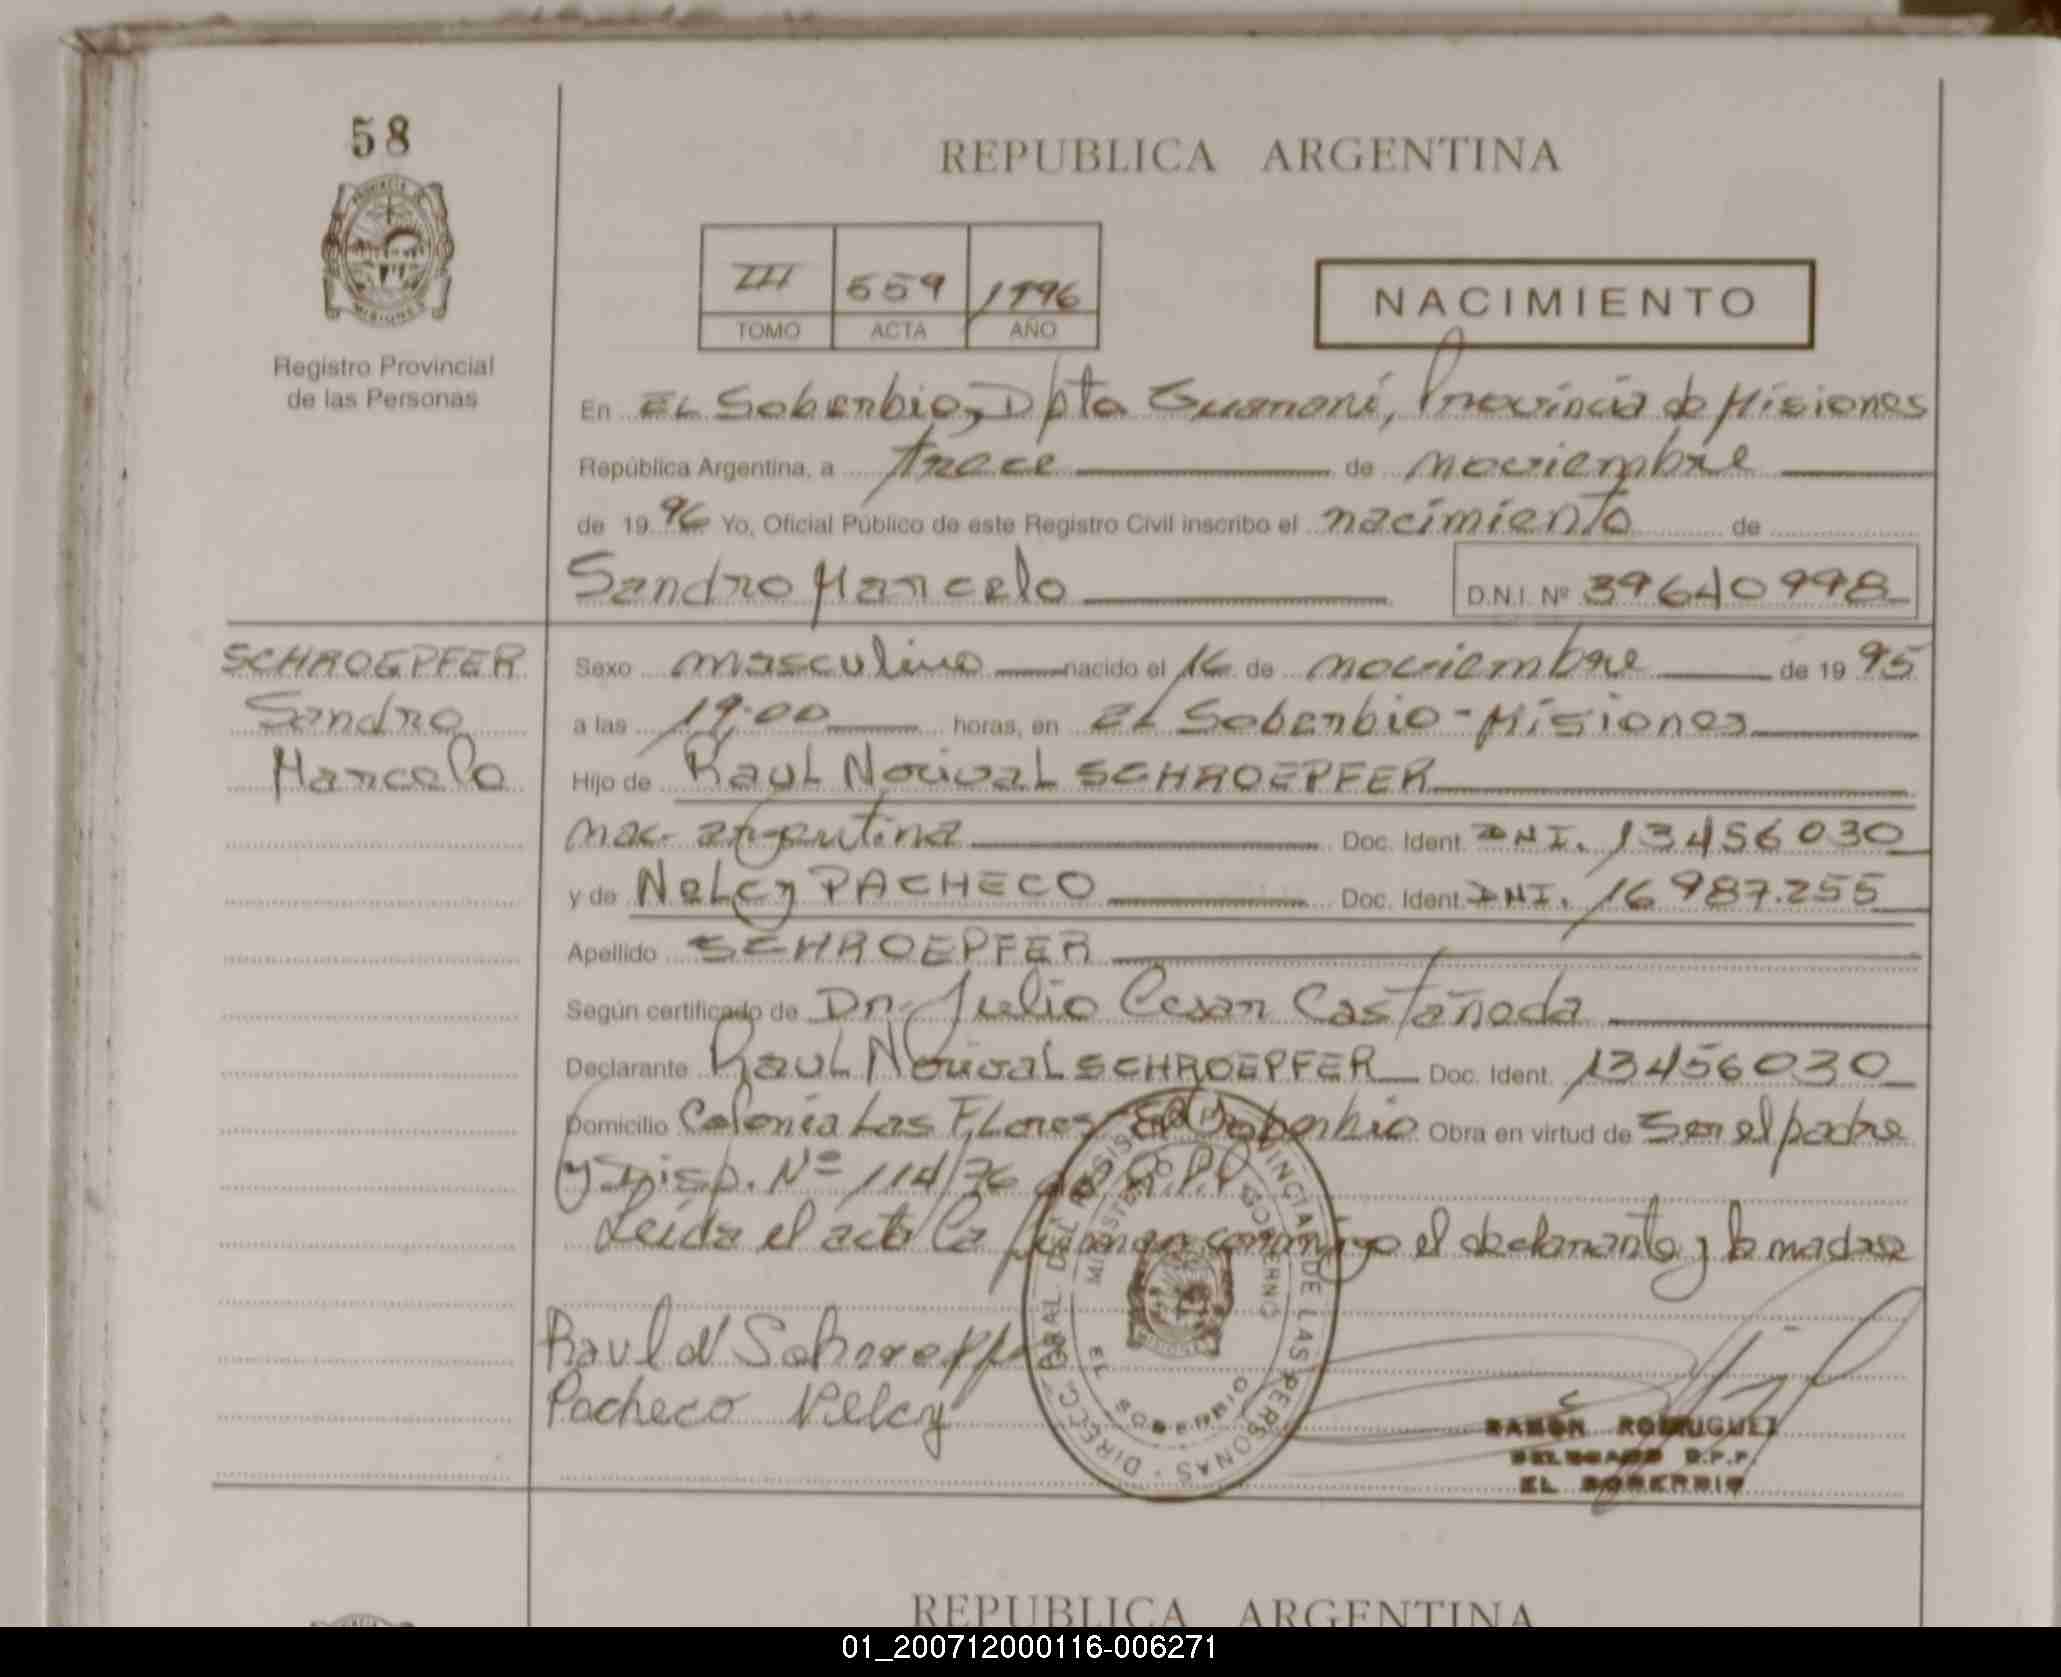 58
REPUBLICA ARGENTINA
III 559 1996
TOMO ACTA AÑO
NACIMIENTO
Registro Provincial
de las Personas
En EL Soberbio, Dpto Guaraní, Provincia de Misiones
República Argentina, a trece de noviembre
de 1996 Yo, Oficial Público de este Registro Civil inscribo el nacimiento de
Sandro Marcelo D.N.I. Nº 39640998
SCHROEPFER
Sandro
Marcelo
Sexo masculino nacido el 16 de noviembre de 1995
a las 19:00 horas, en EL Soberbio - Misiones
Hijo de Raul Norival SCHROEPFER
nac. argentina Doc. Ident. DNI. 13456030
y de Nelcy PACHECO Doc. Ident. DNI. 16987.255
Apellido SCHROEPFER
Según certificado de Dr. Julio Cesar Castañeda
Declarante Raul Norival SCHROEPFER Doc. Ident. 13456030
Domicilio Colonia Las Flores El Soberbio Obra en virtud de Ser el padre
y Disp. Nº 114/76
Leída el acta la firman conmigo el declarante y la madre
Raul N Schroepfer
Pacheco Nelcy
DIRECC. GRAL DEL REGISTRO PROVINCIAL DE LAS PERSONAS
MINISTERIO GOBIERNO
MISIONES
EL SOBERBIO
RAMÓN RODRIGUEZ
DELEGADO R.P.P.
EL SOBERBIO
REPUBLICA ARGENTINA
01_200712000116-006271